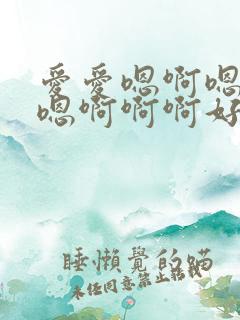 愛愛嗯啊嗯
嗯啊啊啊好
睡懶覺的喵
未經同意禁止轉載